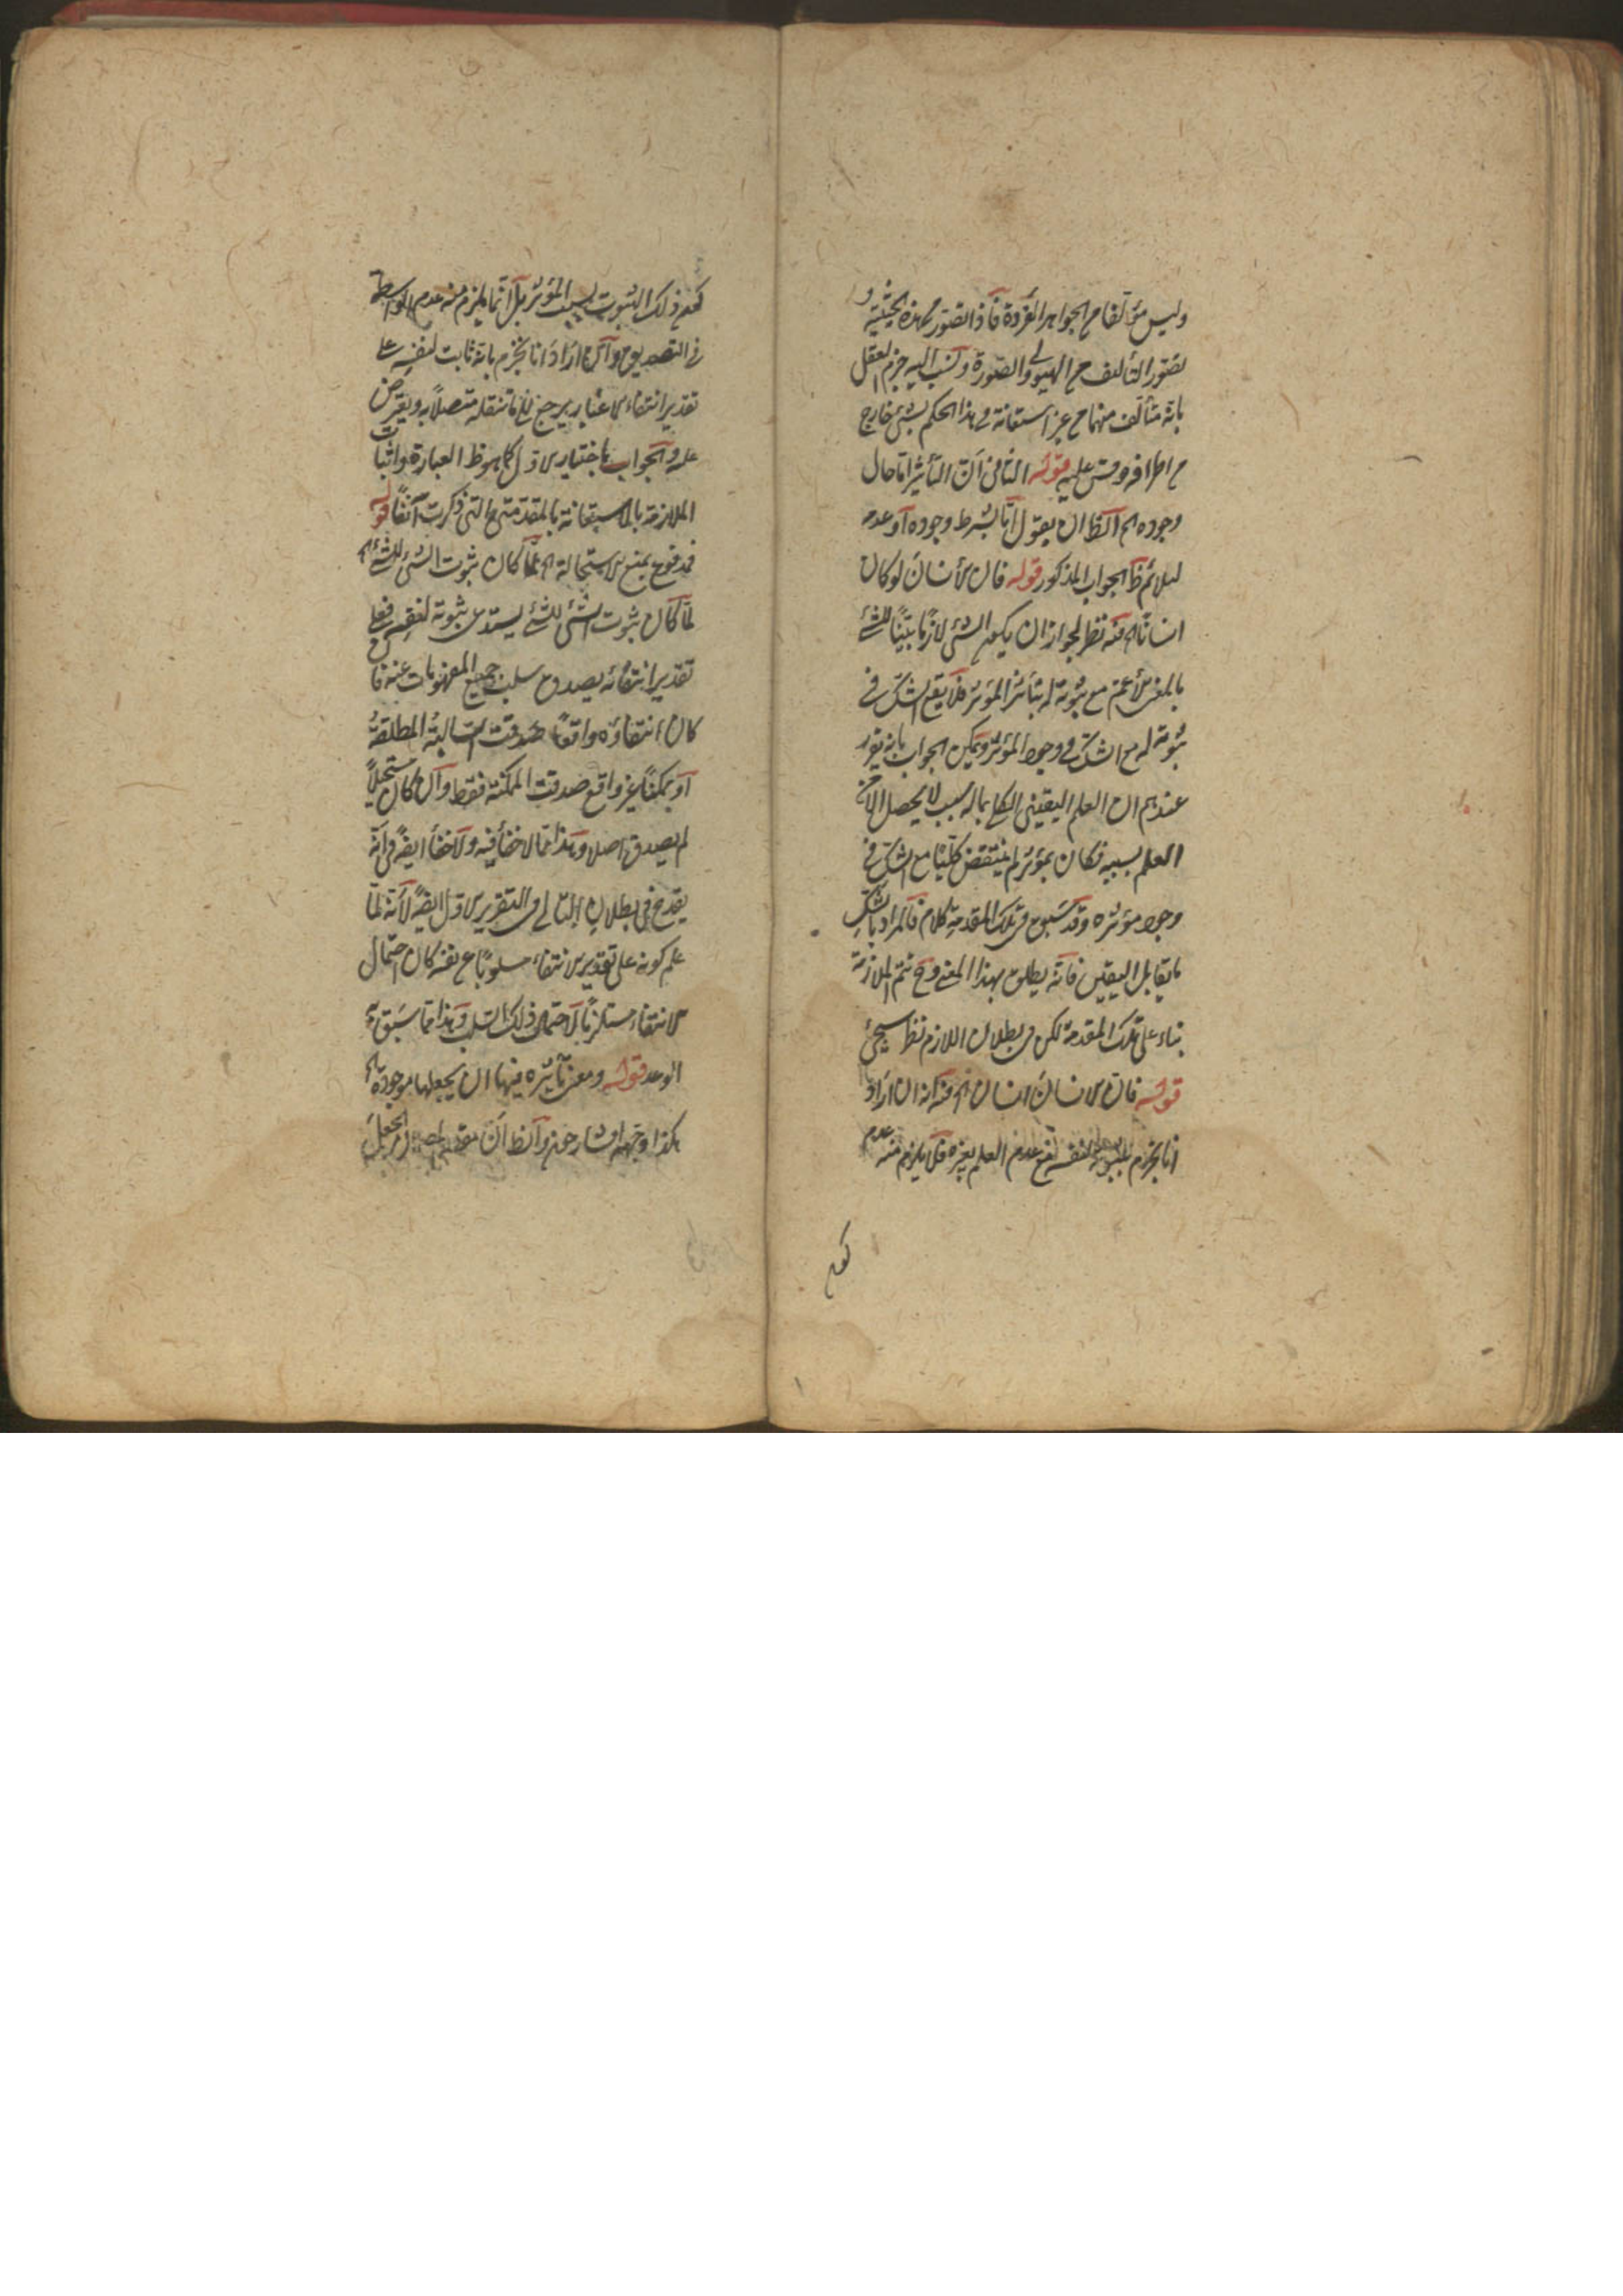 وليس مؤلفا من الجواهر الفردة فاذا تصور بهذه الحيثية و
تصور التألف من الهيولى والصورة ونسب اليه جزم العقل
بانه متألف منهما من غير استعانة فى هذا الحكم بشئ خارج
من اطرافه وقس عليه قوله الثانى ان التأثير اما حال
وجوده اه الظ ان يقول اما بشرط وجوده او عدمه
ليلائم ظ الجواب المذكور قوله فان الانسان لو كان
انسانا اه فيه نظر لجواز ان يكون الشئ لازما بينا للشئ
بالمعنى الاعم مع ثبوته له بتأثير المؤثر فلا يقع الشك فى
ثبوته له مع الشك فى وجود المؤثر ويمكن الجواب بانه تقرر
عندهم ان العلم اليقينى الكلى بما له سبب لا يحصل الا من
العلم بسببه فكان بمؤثر لم يتيقن كليا مع الشك فى
وجود مؤثره وقد سبق فى تلك المقدمة كلام فالمراد بالشك
ما يقابل اليقين فانه يطلق بهذا المعنى وح تتم الملازمة
بناء على تلك المقدمة لكن فى بطلان اللازم نظر سيجئ
قوله فان الانسان انسان اه فيه انه ان اراد
انا نجزم بثبوته لنفسه مع عدم العلم بغيره فلا يلزم منه عدم
كون
كون ذلك الثبوت بسبب المؤثر بل انما يلزم منه عدم الواسطة
فى التصديق وان اراد انا نجزم بانه ثابت لنفسه على
تقدير انتفاء الاغيار يرجع الى ما تنقله متصلا به ويعترض
عليه والجواب باختيار الاول كما هو ظ العبارة واثبات
الملازمة بالاستعانة بالمقدمة التى ذكرت آنفا قوله
مدفوع بمنع الاستحالة اه لما كان ثبوت الشئ للشئ اه
لما كان ثبوت الشئ للشئ يستدعى ثبوته لنفسه فعلى
تقدير انتفائه يصدق سلب جميع المفهومات عنه فان
كان انتفاؤه واقعا صدقت السالبة المطلقة
او ممكنا غير واقع صدقت الممكنة فقط وان كان مستحيلا
لم يصدق اصلا وهذا مما لا خفأ فيه ولا خفأ ايضا فى انه
يقدح فى بطلان التالى فى التقرير الاول ايضا لانه لما
علم كونه على تقدير الانتفاء مسلوبا عن نفسه كان احتمال
الانتفاء مستلزما لاحتمال ذلك السلب وهذا مما سبق به
الوعد قوله ومعنى تأثيره فيها ان يجعلها موجودة اه
هكذا وجهه الشارحون والظ ان الجعل